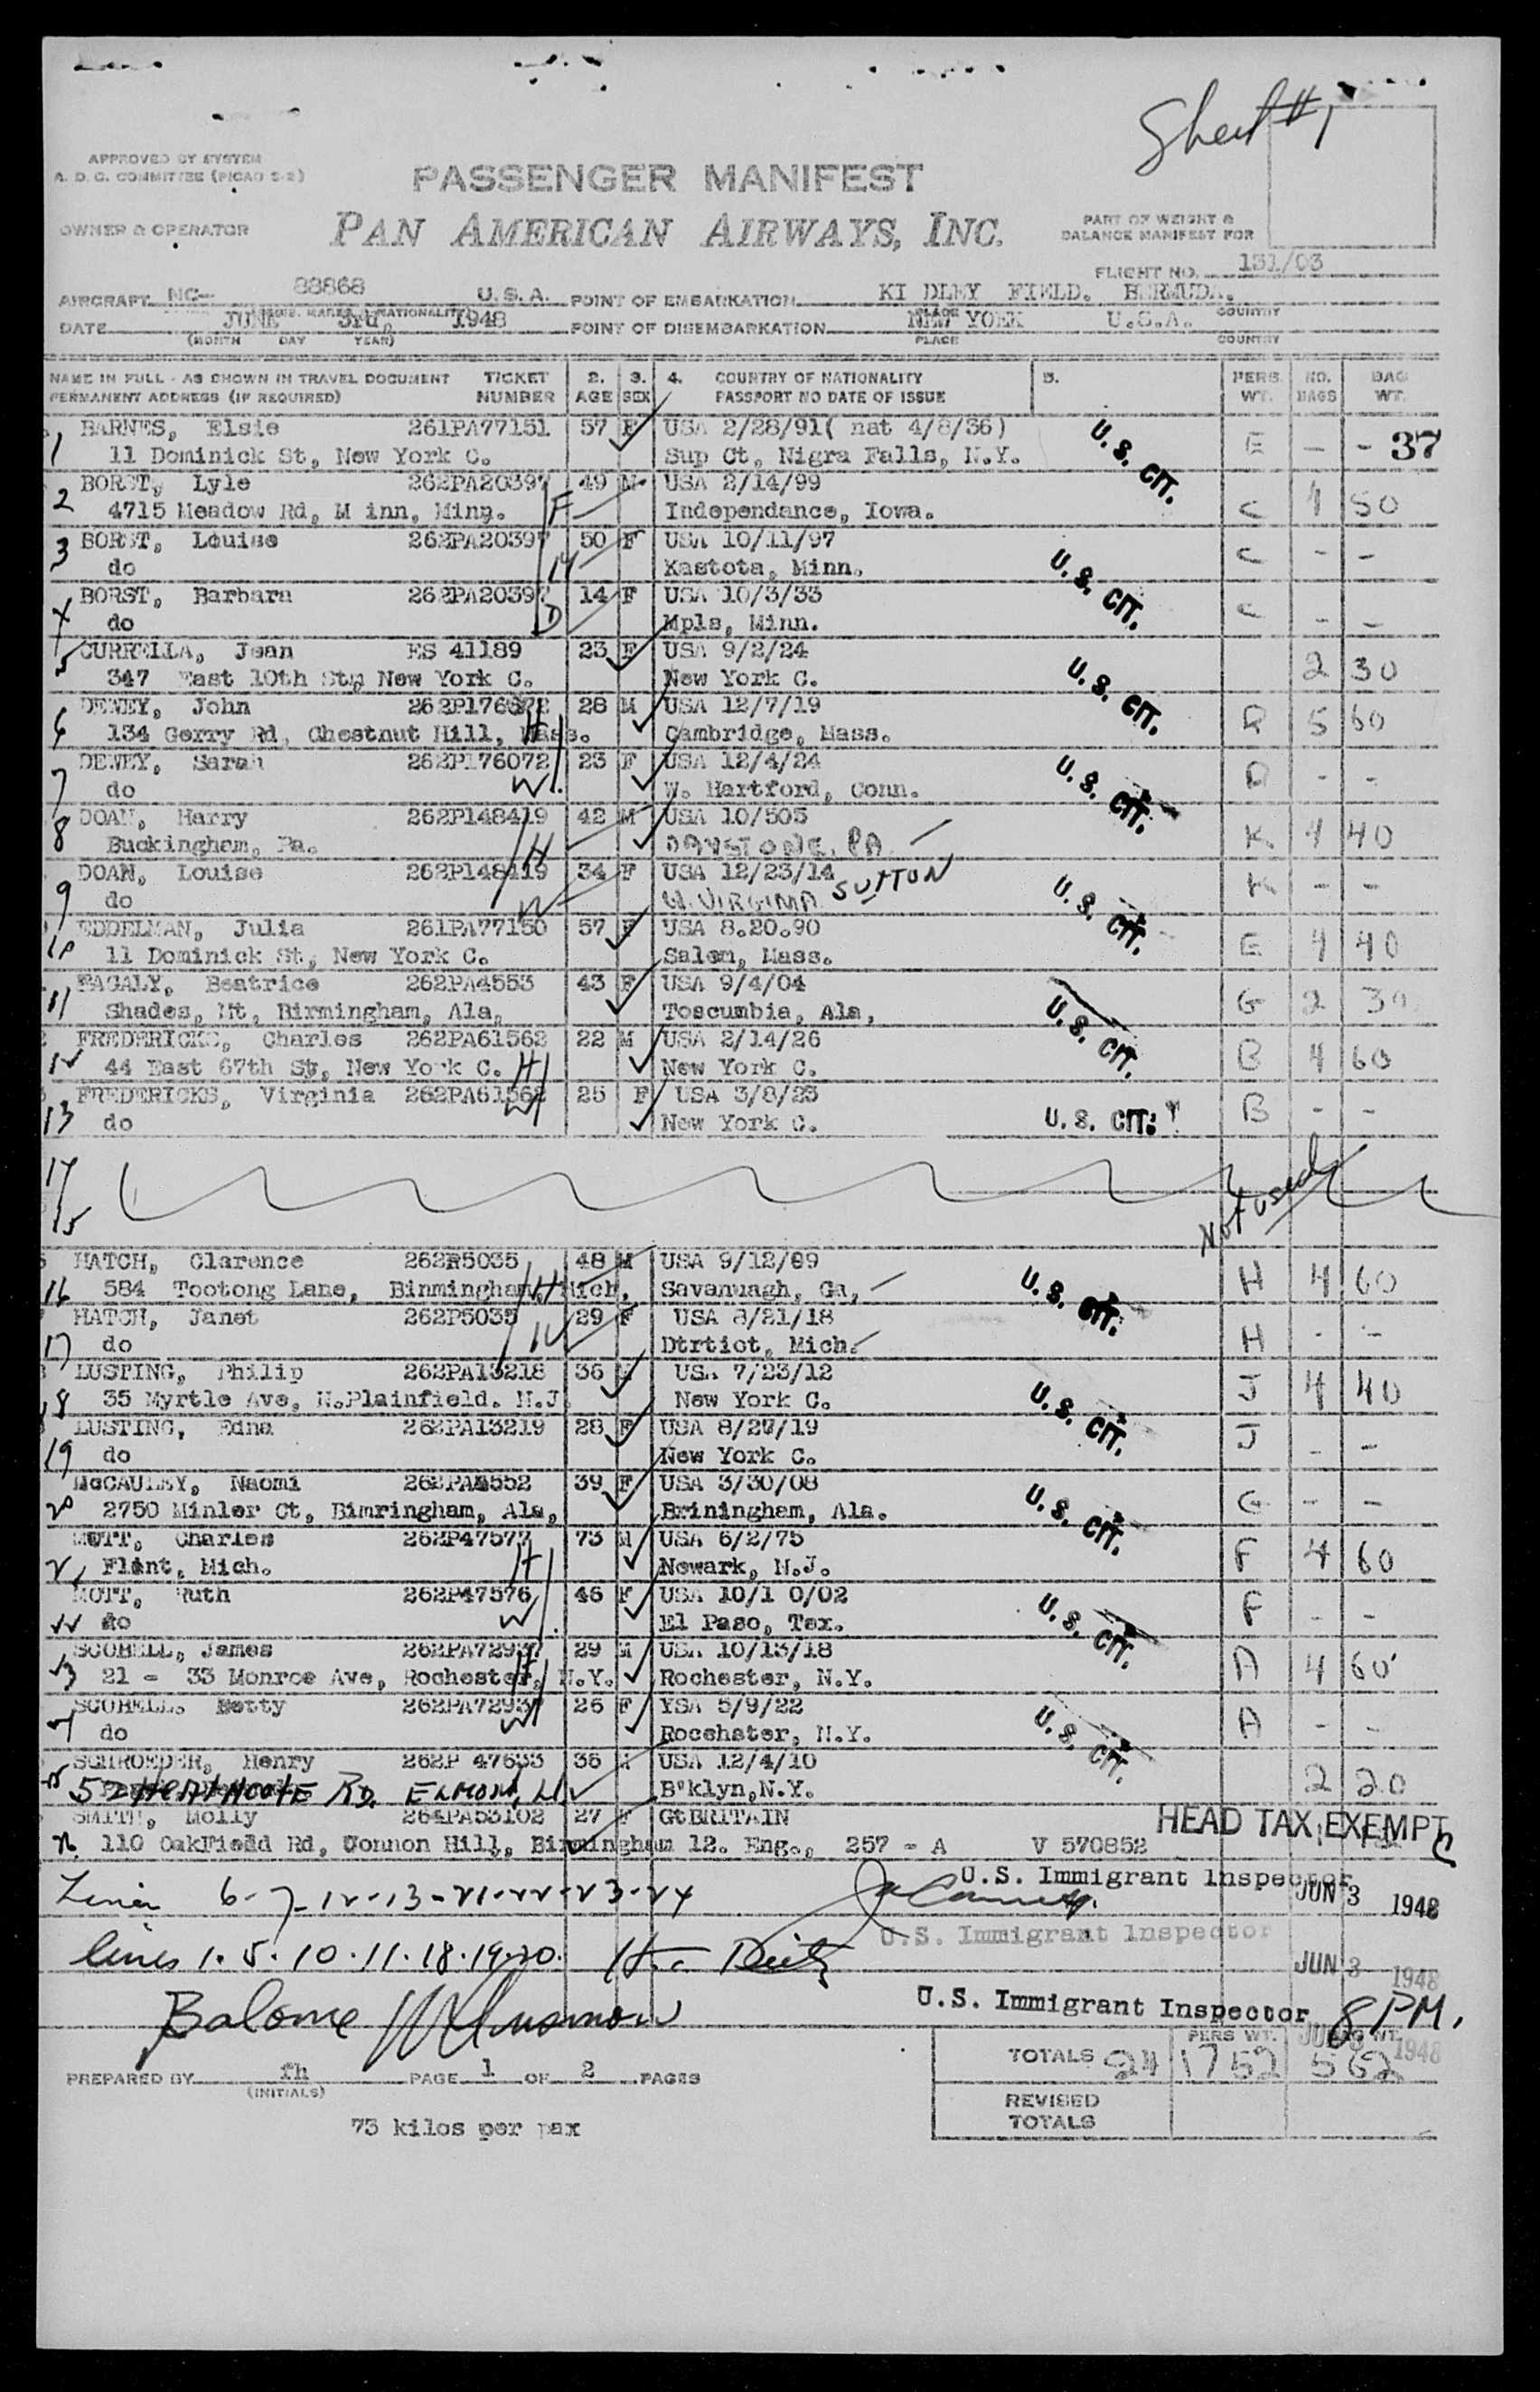 Sheet #1
APPROVED BY SYSTEM
A. D. C. COMMITTEE (PICAO S-2)
PASSENGER MANIFEST
OWNER & OPERATOR
PAN AMERICAN AIRWAYS, INC.
PART OF WEIGHT &
BALANCE MANIFEST FOR
FLIGHT NO. 131/03
AIRCRAFT NC- 88868 U.S.A. POINT OF EMBARKATION KI DLEY FIELD. BERMUDA.
DATE JUNE 3rd, 1948 POINT OF DISEMBARKATION NEW YORK U.S.A.
(MONTH DAY YEAR) PLACE COUNTRY
NAME IN FULL - AS SHOWN IN TRAVEL DOCUMENT TICKET 2. 3. 4. COUNTRY OF NATIONALITY 5. PERS. NO. BAG
PERMANENT ADDRESS (IF REQUIRED) NUMBER AGE SEX PASSPORT NO DATE OF ISSUE WT. BAGS WT.
1 BARNES, Elsie 261PA77151 57 F USA 2/28/91( nat 4/8/36) U.S. CIT. E - - 37
11 Dominick St, New York C. Sup Ct, Nigra Falls, N.Y.
2 BORST, Lyle 262PA20397 49 M USA 2/14/99 C 4 50
4715 Meadow Rd, M inn, Minn. F Independance, Iowa.
3 BORST, Louise 262PA20397 50 F USA 10/11/97 U.S. CIT. C - -
do M Kastota, Minn.
4 BORST, Barbara 262PA20397 14 F USA 10/3/33 C - -
do D Mpls, Minn.
5 CURRELLA, Jean ES 41189 23 F USA 9/2/24 U.S. CIT. 2 30
347 East 10th St, New York C. New York C.
6 DEWEY, John 262P176072 28 M USA 12/7/19 D 5 60
134 Gerry Rd, Chestnut Hill, Mass. H Cambridge, Mass.
7 DEWEY, Sarah 262P176072 23 F USA 12/4/24 U.S. CIT. D - -
do W W. Hartford, Conn.
8 DOAN, Harry 262P148419 42 M USA 10/505 K 4 40
Buckingham, Pa. H
9 DOAN, Louise 262P148419 34 F USA 12/23/14 U.S. CIT. K - -
do W W. VIRGINIA SUTTON
10 EDDELMAN, Julia 261PA77150 57 F USA 8.20.90 E 4 40
11 Dominick St, New York C. Salem, Mass.
11 FAGALY, Beatrice 262PA4553 43 F USA 9/4/04 U.S. CIT. G 2 30
Shades, Mt, Birmingham, Ala, Toscumbia, Ala,
12 FREDERICKS, Charles 262PA61562 22 M USA 2/14/26 B 4 60
44 East 67th St, New York C. H New York C.
13 FREDERICKS, Virginia 262PA61562 25 F USA 3/8/23 U.S. CIT. B - -
do W New York C.
14
15 Not used
16 HATCH, Clarence 262P5035 48 M USA 9/12/99 U.S. CIT. H 4 60
584 Tootong Lane, Binmingham, Mich. H Savanuagh, Ga,
17 HATCH, Janet 262P5035 29 F USA 8/21/18 H - -
do W Dtrtiot, Mich.
18 LUSTING, Philip 262PA13218 36 M USA 7/23/12 U.S. CIT. J 4 40
35 Myrtle Ave, N.Plainfield. N.J. New York C.
19 LUSTING, Edna 262PA13219 28 F USA 8/27/19 J - -
do New York C.
20 McCAULEY, Naomi 262PA4552 39 F USA 3/30/08 U.S. CIT. G - -
2750 Minler Ct, Bimringham, Ala, Briningham, Ala.
21 MOTT, Charles 262P47577 73 M USA 6/2/75 F 4 60
Flint, Mich. H Newark, N.J.
22 MOTT, Ruth 262P47576 46 F USA 10/1 0/02 U.S. CIT. F - -
do W El Paso, Tex.
23 SCOBELL, James 262PA72937 29 M USA 10/13/18 A 4 60
21 - 33 Monroe Ave, Rochester, N.Y. H Rochester, N.Y.
24 SCOBELL, Betty 262PA72937 26 F YSA 5/9/22 U.S. CIT. A - -
do W Rocehster, N.Y.
25 SCHROEDER, Henry 262P 47633 36 M USA 12/4/10 2 20
52 HEATHCOTE RD. ELMONT, L.I. B'klyn,N.Y.
SMITH, Molly 264PA53102 27 F GtBRITAIN HEAD TAX EXEMPT
26 110 Oakfield Rd, Connon Hill, Birmingham 12. Eng., 257 - A V 570852
U.S. Immigrant Inspector
Lines 6-7-12-13-21-22-23-24 JUN 3 1948
U.S. Immigrant Inspector
lines 1.5.10.11.18.19.20. JUN 3 1948
U.S. Immigrant Inspector 8 PM.
PERS WT. BAG WT.
TOTALS 24 1752 562
PREPARED BY fh PAGE 1 OF 2 PAGES
(INITIALS)
REVISED
TOTALS
73 kilos per pax